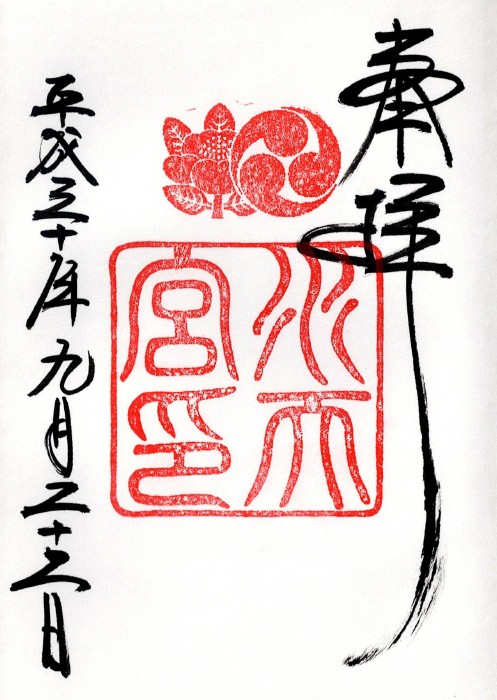 奉拝
水天
宮印
平成三十年九月二十三日